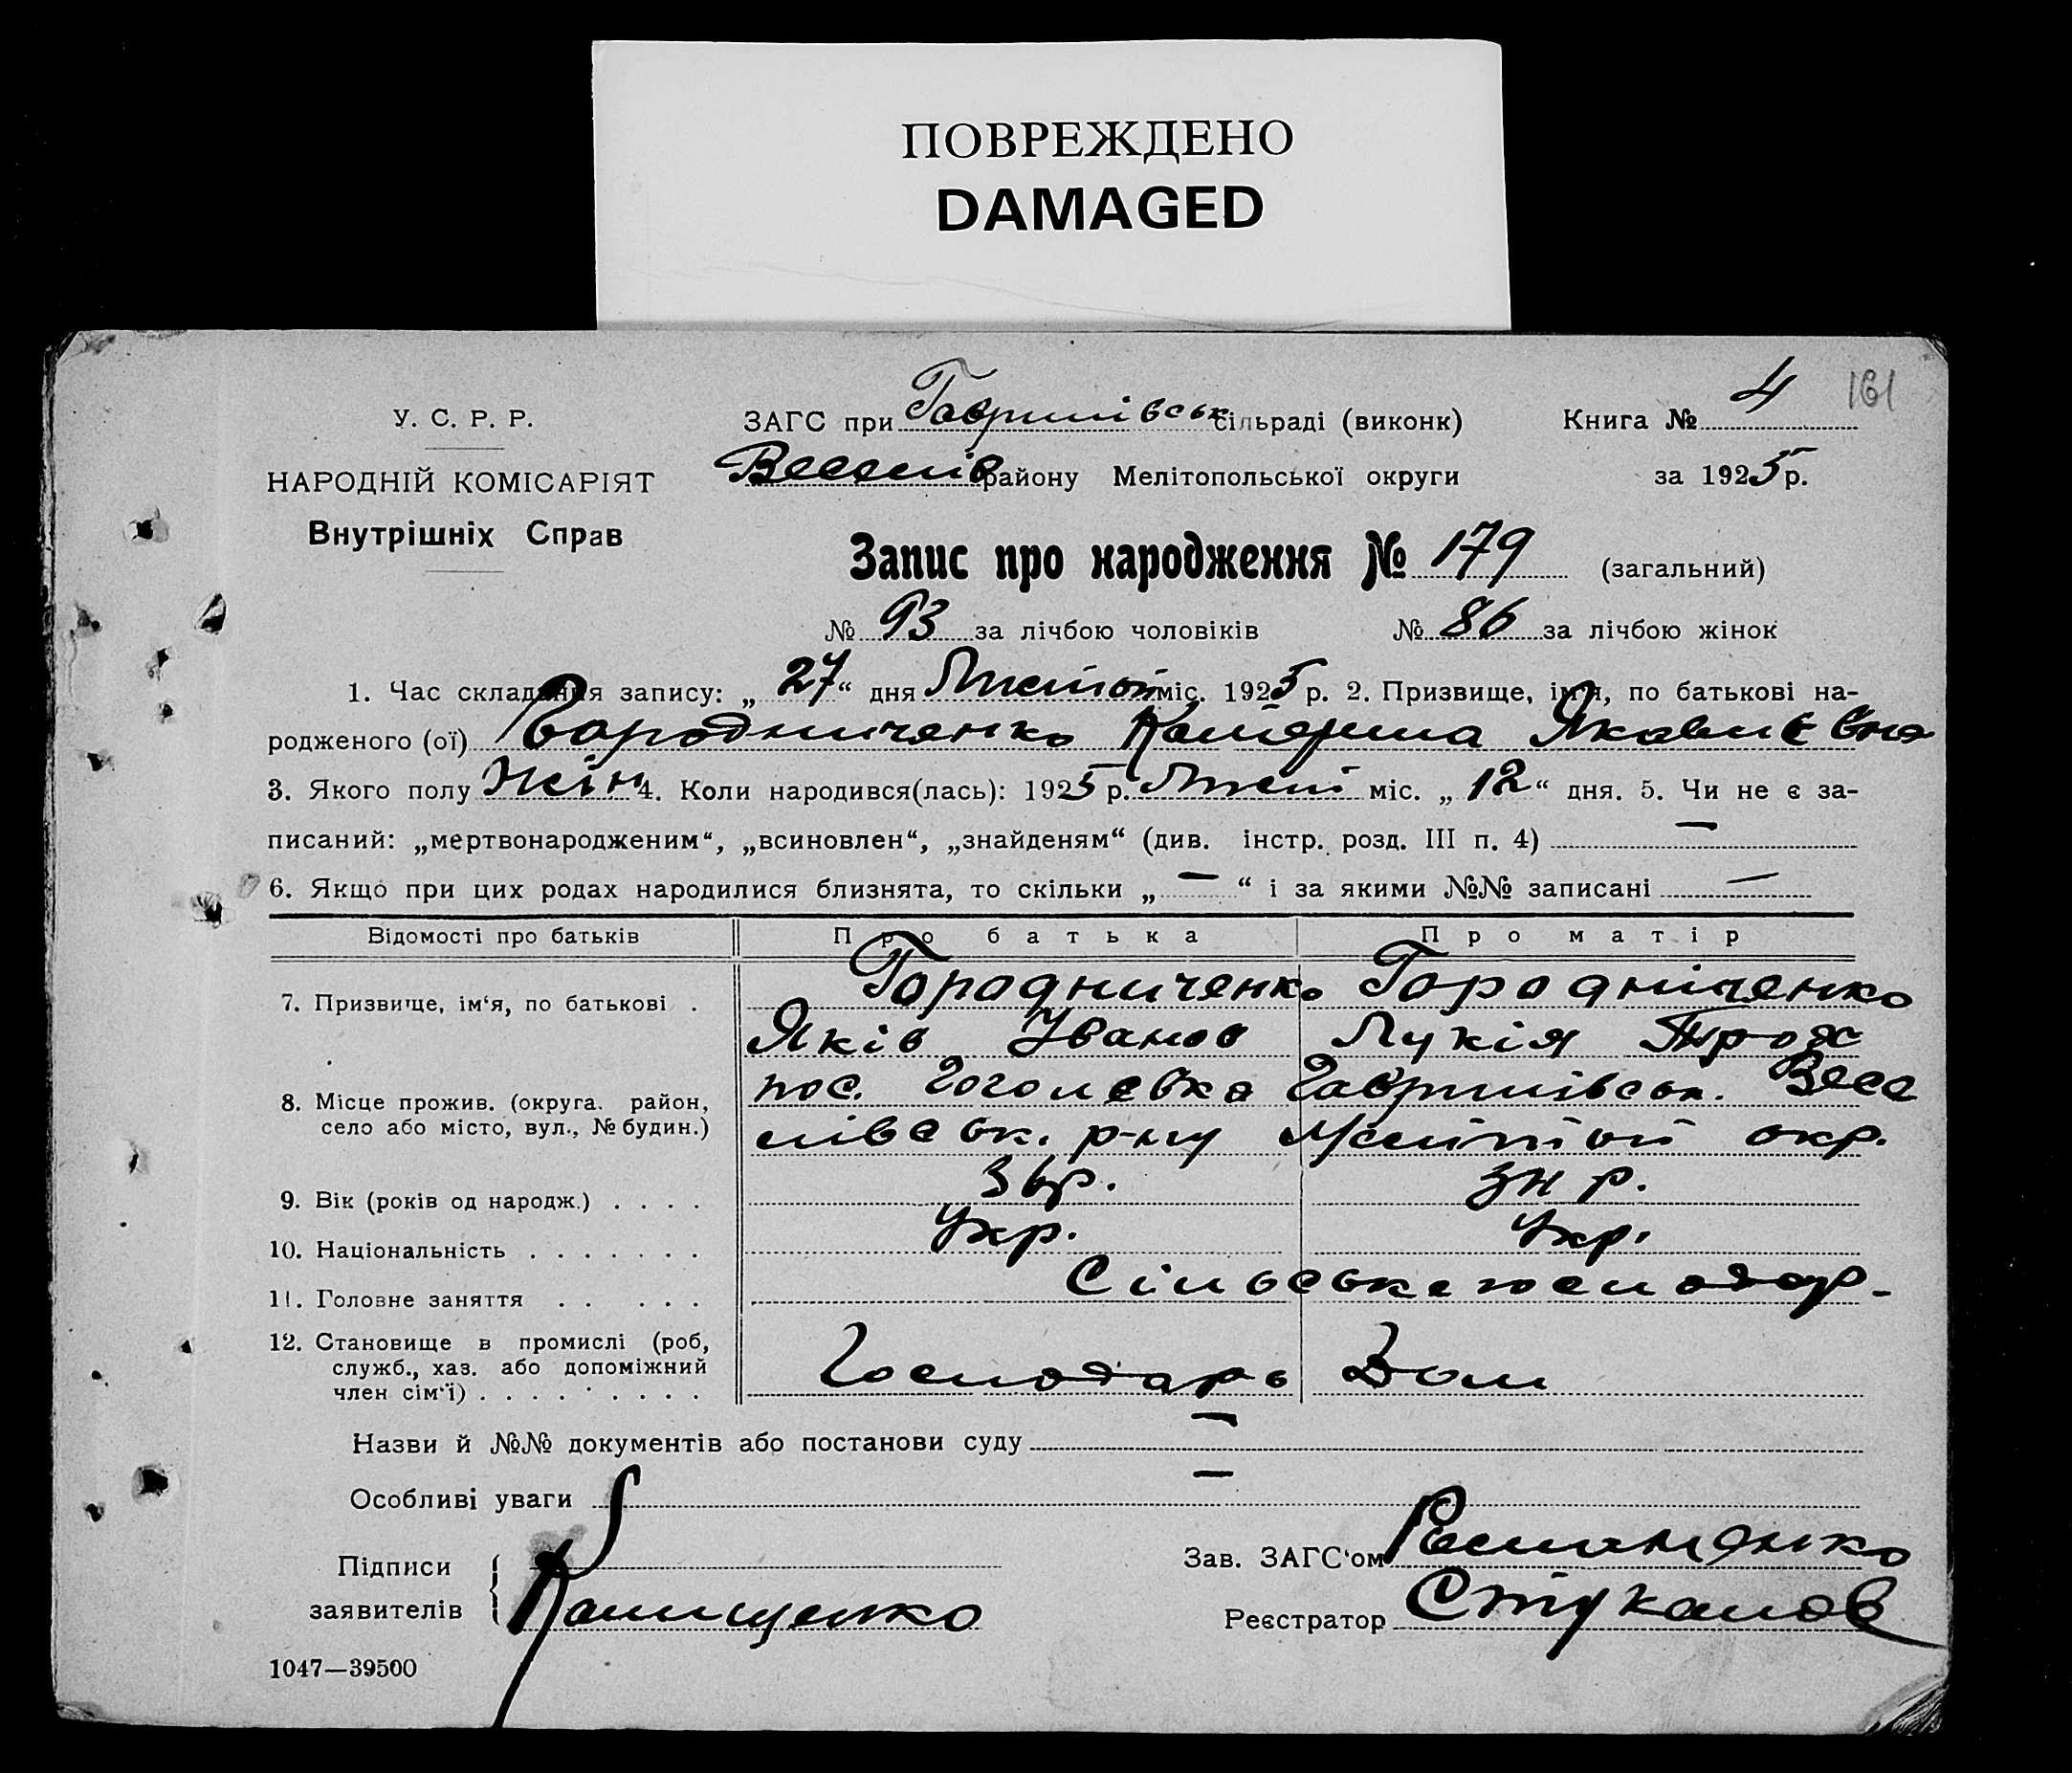 ПОВРЕЖДЕНО
DAMAGED
161
У. С. Р. Р.
НАРОДНІЙ КОМІСАРІЯТ
Внутрішніх Справ
ЗАГС при Гаврилівськ сільраді (виконк)
Книга № 4
Веселів району Мелітопольської округи
за 1925 р.
Запис про народження № 179 (загальний)
№ 93 за лічбою чоловіків № 86 за лічбою жінок
1. Час складання запису: „ 27 “ дня міс. 1925 р. 2. Призвище, ім'я, по батькові на-
родженого (ої) Городниченко Катерина Яковлєвна
3. Якого полу Жін 4. Коли народився(лась): 1925 р. міс. „ 12 “ дня. 5. Чи не є за-
писаний: „мертвонародженим“, „всиновлен“, „знайденям“ (див. інстр. розд. III п. 4) —
6. Якщо при цих родах народилися близнята, то скільки „ — “ і за якими №№ записані —
Відомості про батьків Про батька Про матір
7. Призвище, ім‘я, по батькові . Городниченко Городніченко
Яків Іванов Лукія
8. Місце прожив. (округа. район,
село або місто, вул., № будин.)
пос. Гоголевка Гаврилівськ. Весе
лівськ. р-ну окр.
9. Вік (років од народж.) . . . . 36р. р.
10. Національність . . . . . . . Укр. Укр.
11. Головне заняття . . . . . Сільське господар-
12. Становище в промислі (роб,
служб., хаз. або допоміжний
член сім‘ї) . . . . . . . . .
Господарь Дом
Назви й №№ документів або постанови суду —
Особливі уваги —
Підписи
заявителів
Зав. ЗАГС‘ом
Реєстратор Стукалов
1047—39500